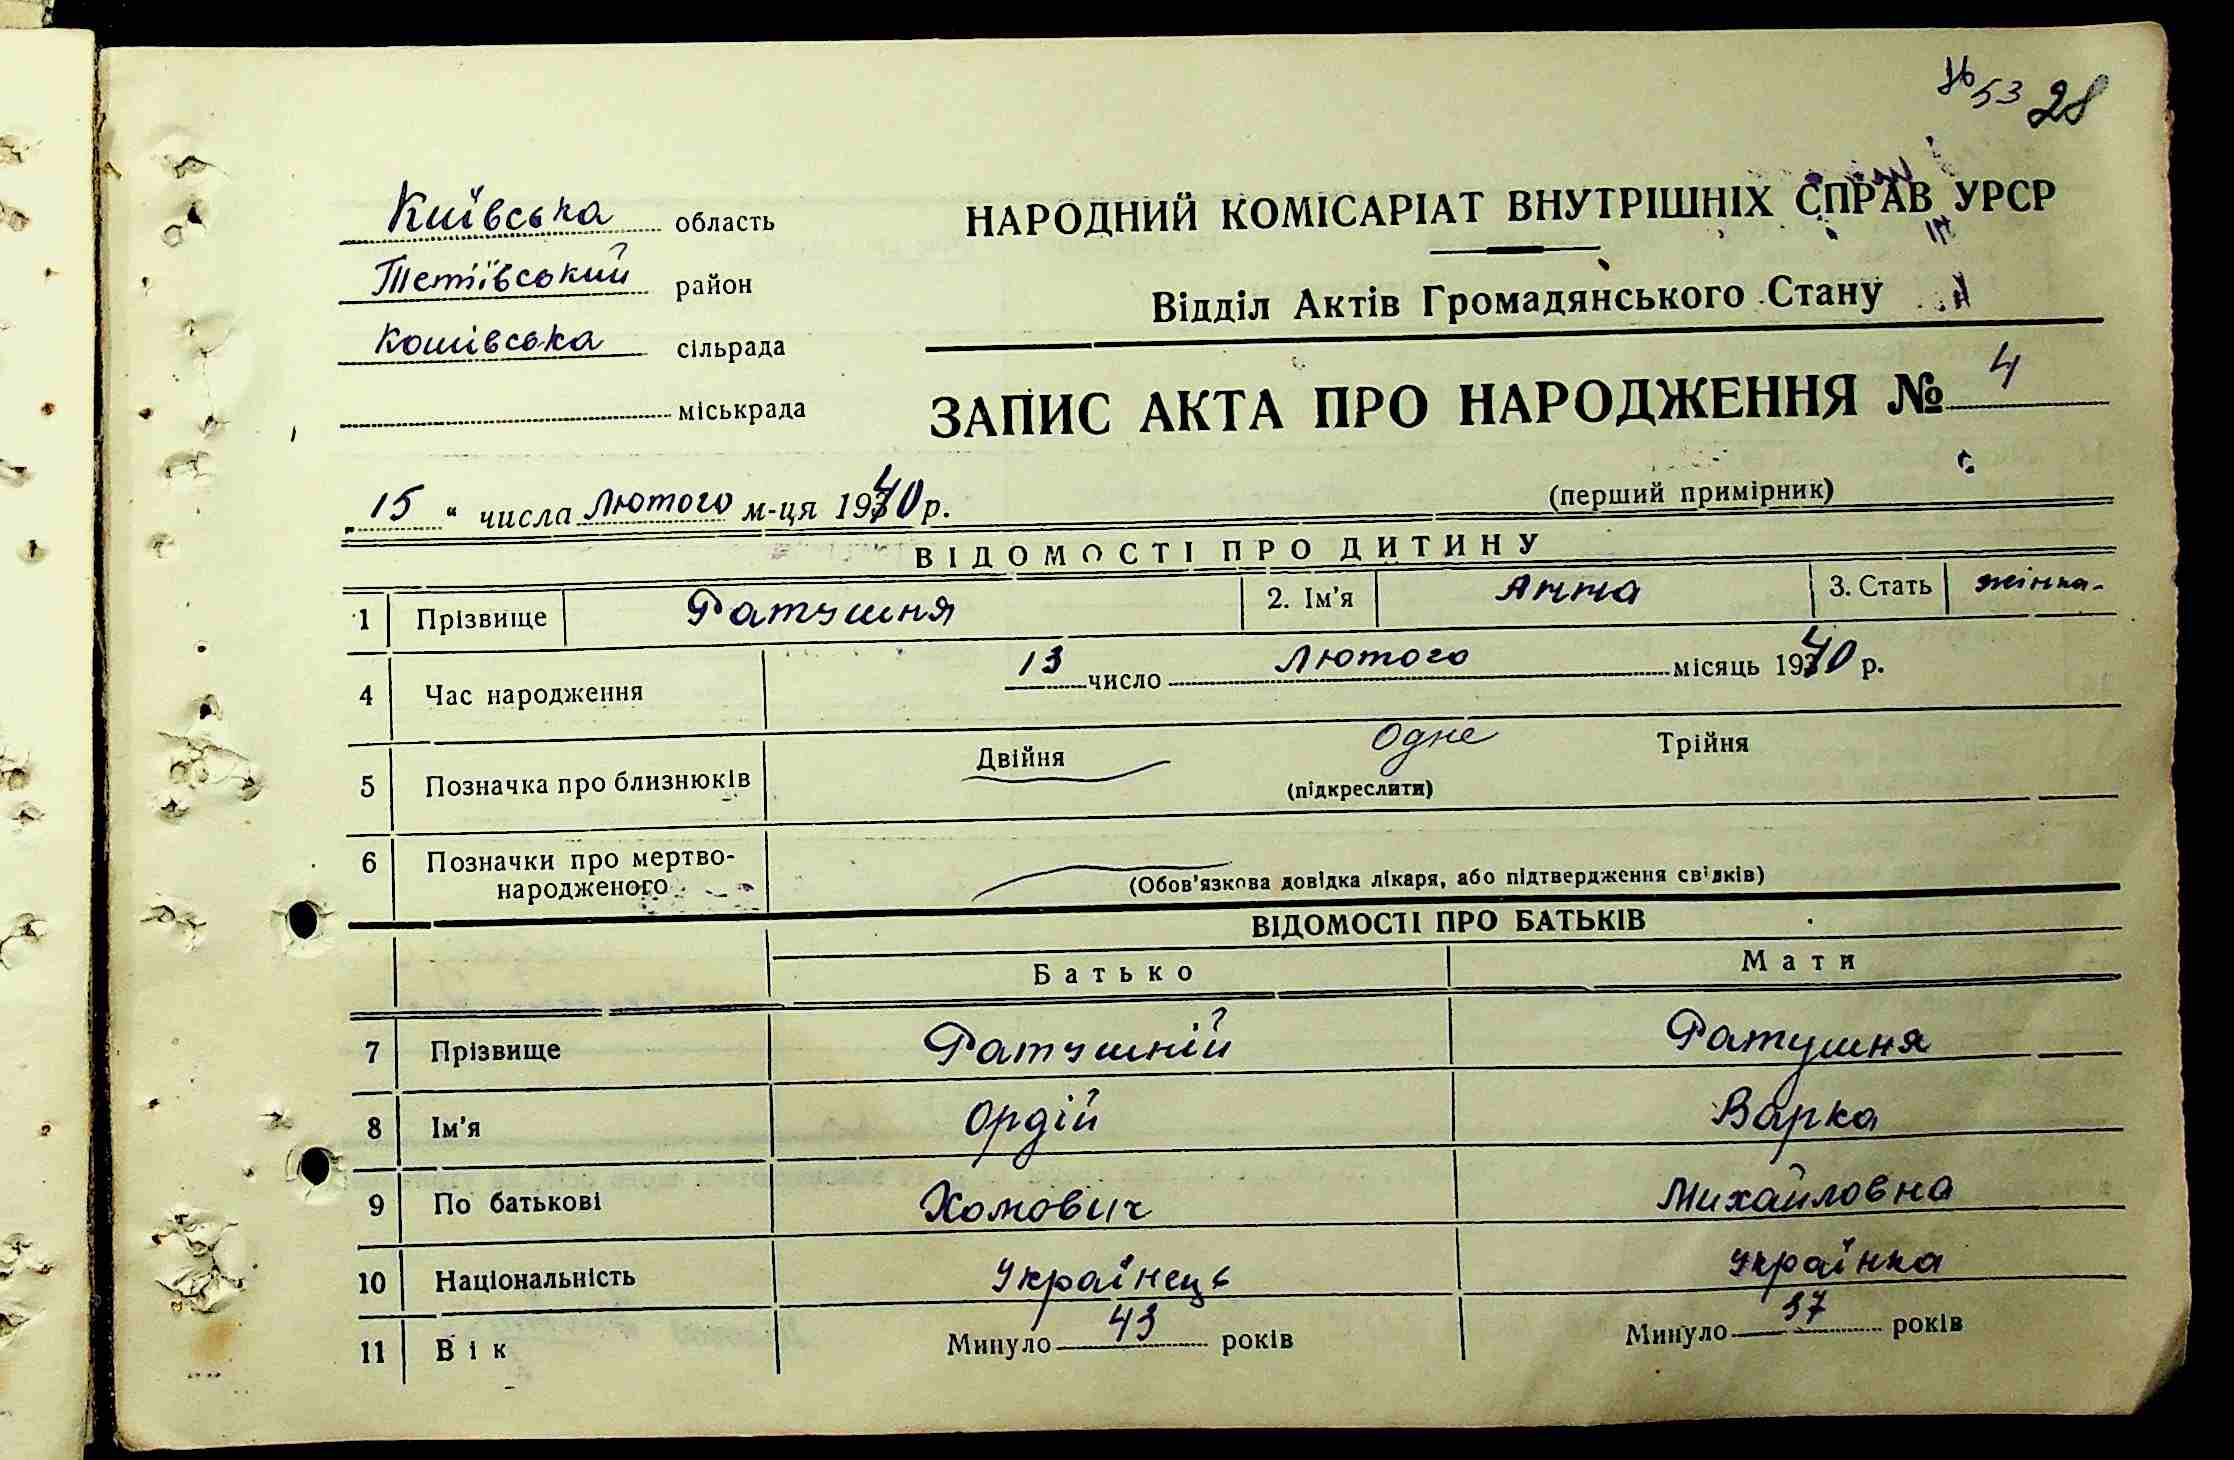 53 28
Київська область
Тетіївський район
Кошівська сільрада
міськрада
НАРОДНИЙ КОМІСАРІАТ ВНУТРІШНІХ СПРАВ УРСР
Відділ Актів Громадянського Стану
ЗАПИС АКТА ПРО НАРОДЖЕННЯ № 4
(перший примірник)
„15“ числа Лютого м-ця 1940 р.
ВІДОМОСТІ ПРО ДИТИНУ
1 Прізвище Ратушня 2. Ім'я Анна 3. Стать жінка-
4 Час народження 13 число Лютого місяць 1940 р.
5 Позначка про близнюків Двійня Одне Трійня
(підкреслити)
6 Позначки про мертво-
народженого (Обов'язкова довідка лікаря, або підтвердження свідків)
ВІДОМОСТІ ПРО БАТЬКІВ
Батько Мати
7 Прізвище Ратушній Ратушня
8 Ім'я Ордій Варка
9 По батькові Хомович Михайловна
10 Національність Українець Українка
11 Вік Минуло 43 років Минуло 37 років